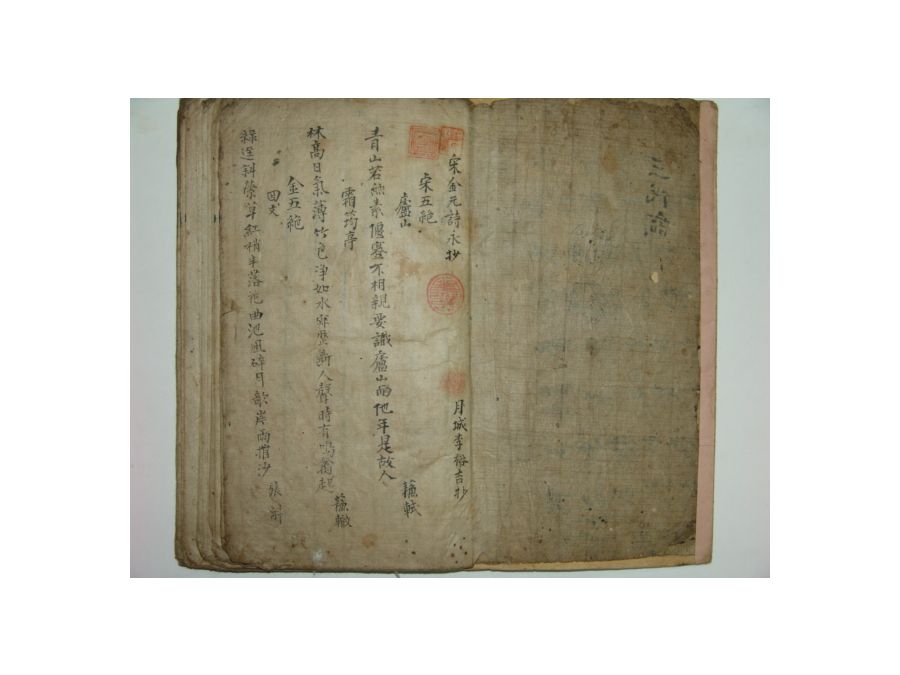 三代詩
宋金元詩永抄
月城李裕吉抄
宋五絶
廬山
青山若無素偃蹇不相親要識廬山面他年是故人
蘇軾
霜筠亭
林高日氣薄竹色淨如水寂歷斷人聲時有鳴禽起
蘇轍
金五絶
回文
綠逕斜縈草紅梢半落花曲池風碎月欹岸雨沙
張斛